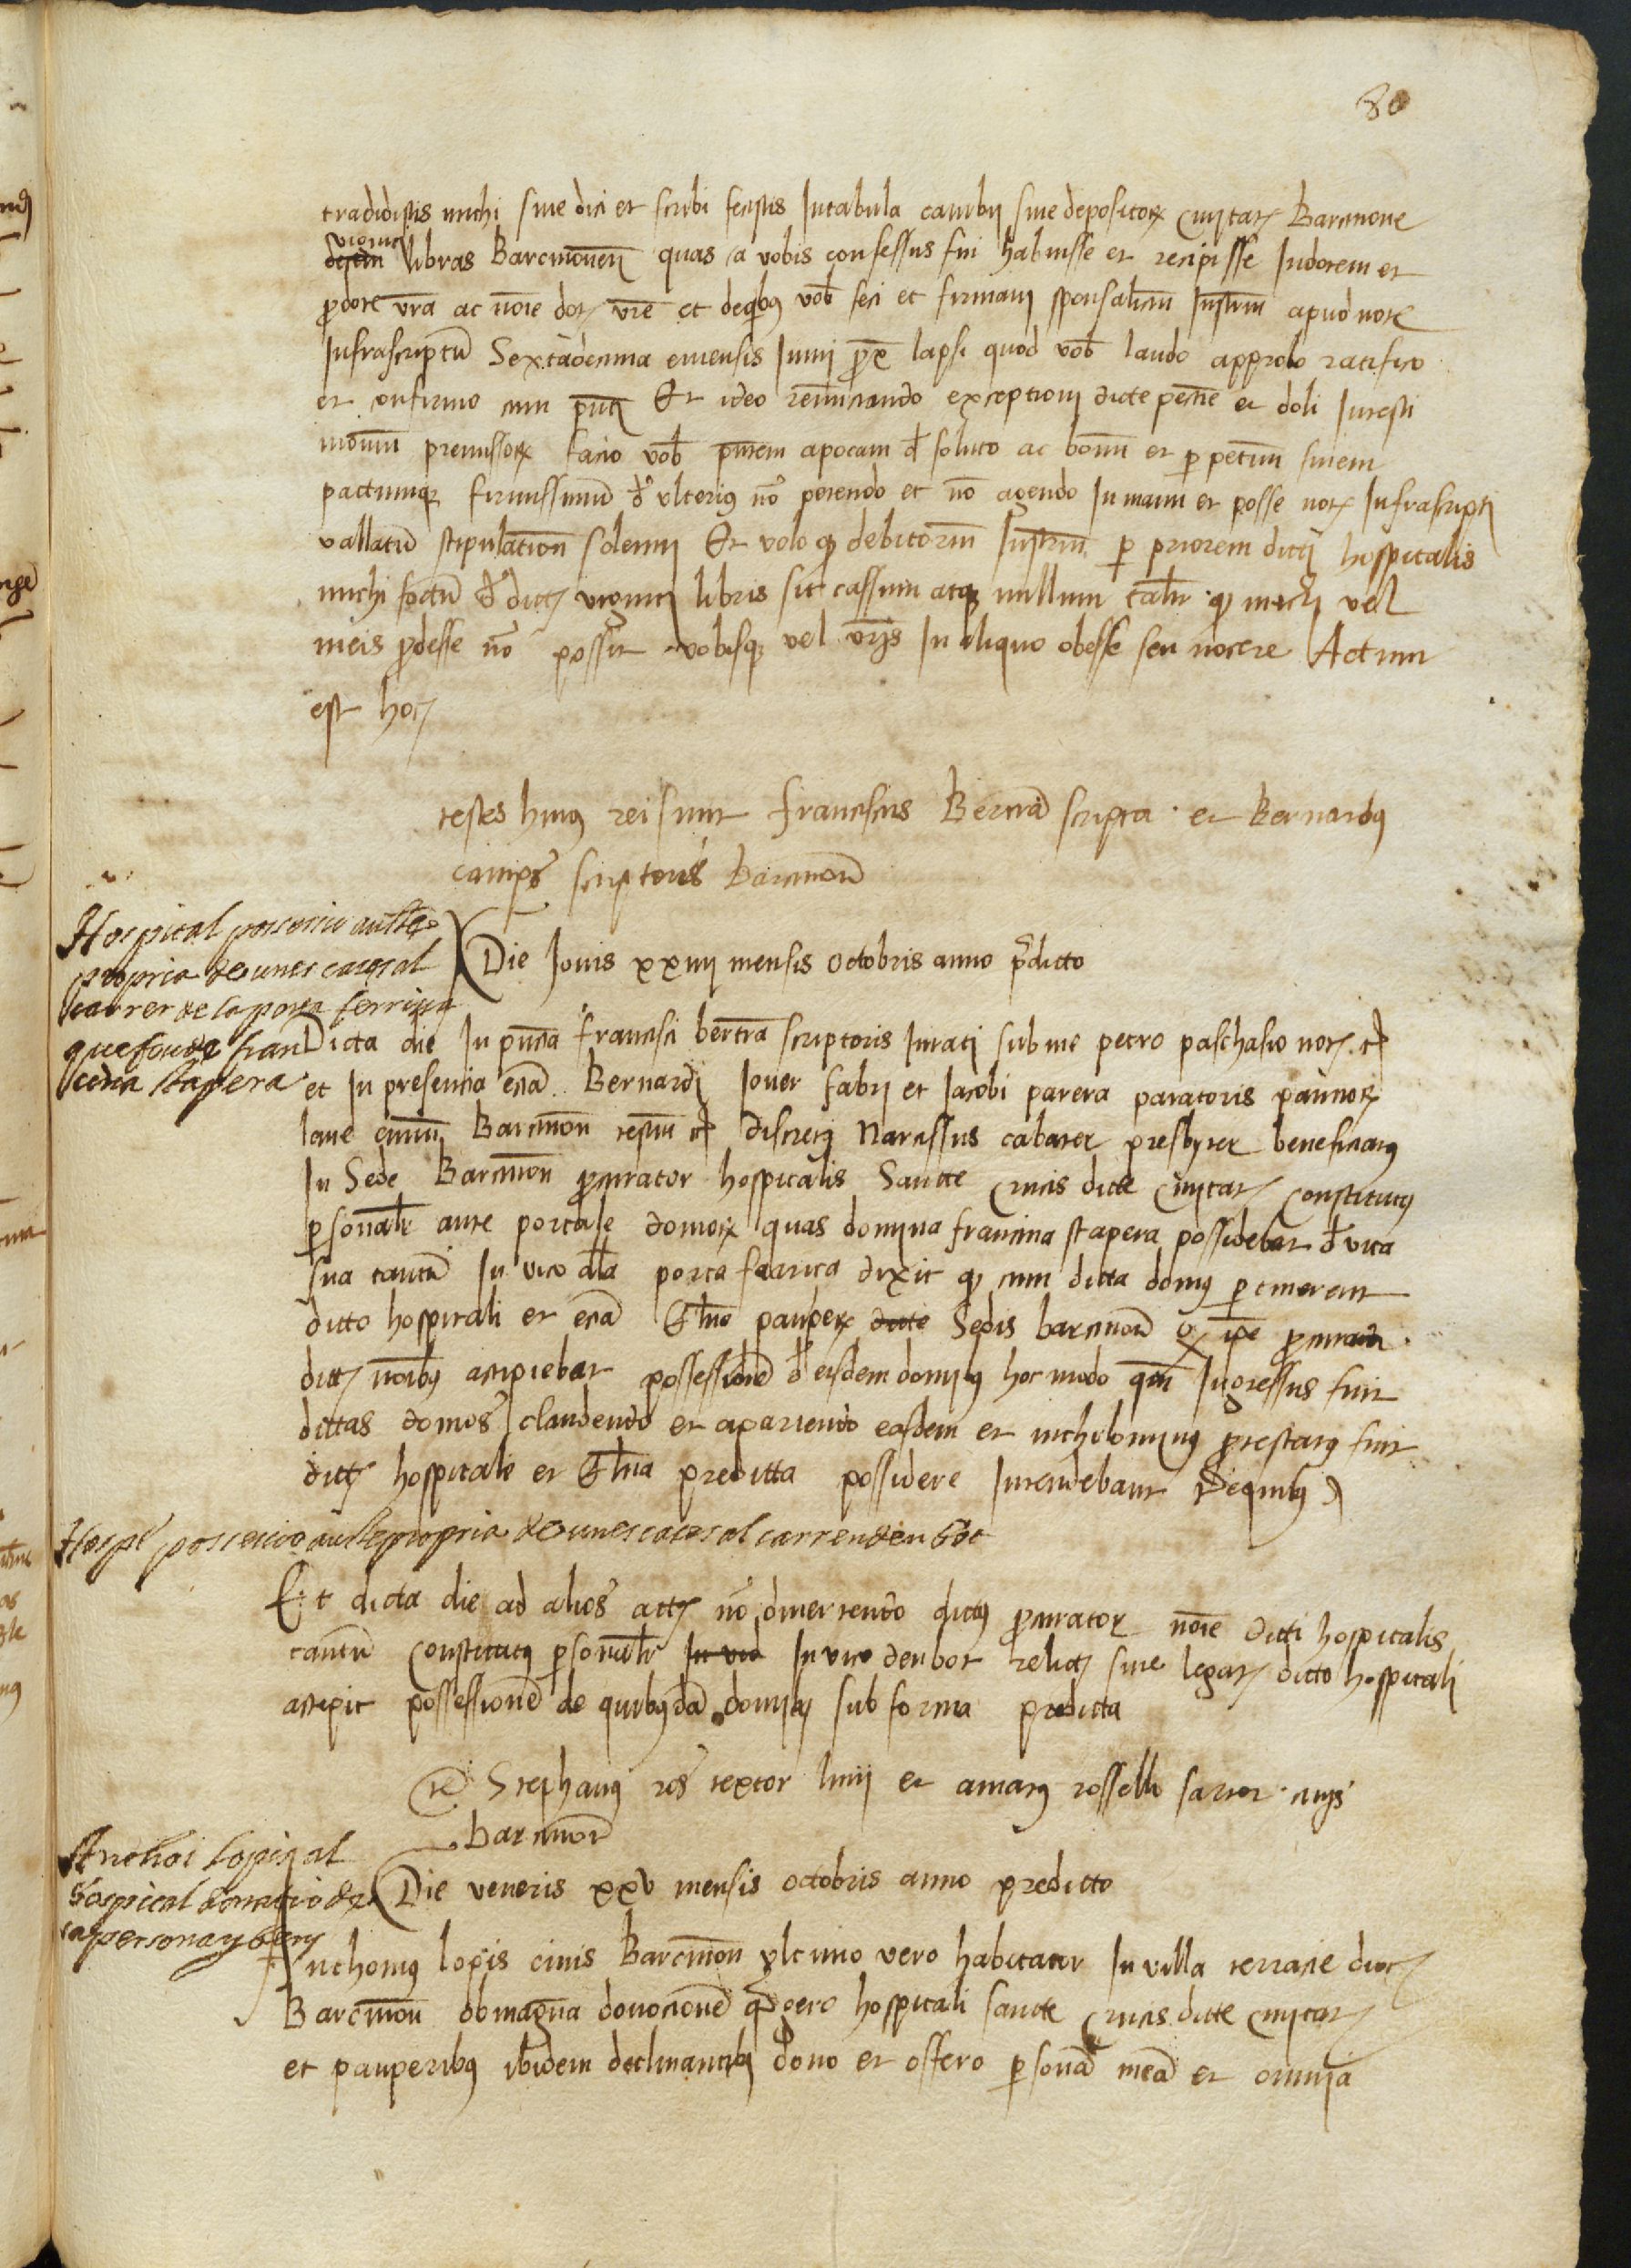 80
tradidistis michi sive dici et scribi fecistis In tabula cambij sive depositorꝝ Civitatꝭ Barcinone
viginti
decem libras Barcinoneñ quas a vobis confessus fui habuisse et recepisse In dotem et
ꝓ dote vr̄a ac noīe dotꝭ vr̄e et de qⁱbꝰ vob̄ feci et firmavi sponsaliciū Instr̄m apud notꝭ
Infrascriptū Sextadecima mensis Junij ꝓx̄ lapsi quod vob̄ laudo approbo ratifico
et confirmo cum pn̄ti Et ideo renunciando exceptioni dicte pecūie et doli In testi
monium premissorꝝ facio vob̄ pn̄tem apocam de soluto ac bonū et ꝑpetuū finem
pactumqꝫ firmissimū de ulteriꝰ nō petendo et nō agendo In manu et posse notꝭ Infrascripti
vallatū stipulatioñ solemni Et volo ꝙ debitoriū Instr̄m ꝑ priorem dicti hospitalis
michi factū de dictꝭ viginti libris sit cassum atqꝫ nullum talr̄ ꝙ michi vel
meis ꝓdesse nō possit vobisqꝫ vel vr̄is In aliquo obesse seu nocere Actum
est hocꝭ
testes huiꝰ rei sunt franciscus Bertrā scripta et Bernardꝰ
camps scriptores barcinoñ
Hospital possessio auctᵉ
propria de unes cases al
carrer de la porta ferrissa
que fou de fran
cina stapera
Die Jovis xxiiij mensis octobris anno p̄dicto
Dicta die In pn̄cia francisci bertrā scriptoris Jurati sub me petro paschasio notꝭ etc
et In presencia eciā Bernardi Jover fabri et Jacobi parera paratoris pannorꝭ
lane civiū Barcinoñ testiū etc discretꝰ Narcissus cabater presbyter beneficiatꝰ
In Sede Barcinoñ ꝓcurator hospitalis Sancte Crucis dicte Civitatꝭ Constitutꝰ
ꝑsonalr̄ ante portale domorꝝ quas domina francina stapera possidebat de vita
sua tantū In vico dl̄a porta farrica dixit ꝙ cum dicta domꝰ ꝑtinerent
dicto hospitali et eciā Elīne pauperꝝ dicte Sedis barcinoñ ꝙ ip̄e ꝓcurator
dictꝭ noībꝰ accipiebat possessionē de eisdem domibꝰ hoc modo qm̄ Ingressus fuit
dictas domos claudendo et apariendo easdem et nichilominꝰ ꝓtestatꝰ fuit
dictꝭ hospitale et Elīna predicta possidere Intendebant De quibꝰ
Hospl̄ possessio auctᵉ propria de unes cases al carrer den bot
Et dicta die ad alios actꝭ nō divertendo dictꝰ ꝓcurator noīe dicti hospitalis
tantū Constitutꝰ ꝑsonalr̄ In vico In vico den bot relictꝭ sive legatꝭ dicto hospitali
accepit possessionē de quibꝰdā domibꝰ sub forma predicta
tē Stephanꝰ ros textor linij et amatꝰ rosselli sartor civis
barcinoñ
Anthoi lopis al
hospital donacio de
sa persona y bens
Die veneris xxv mensis octobris anno predicto
Anthoniꝰ lopis civis Barcinoñ ultimo vero habitator In villa terracie diocꝭ
Barcinoñ ob magna devocionē q̄ gero hospitali sancte Crucis dicte Civitatꝭ
et pauperibꝰ ibidem declinantibꝰ dono et offero ꝑsonā meā et omnia